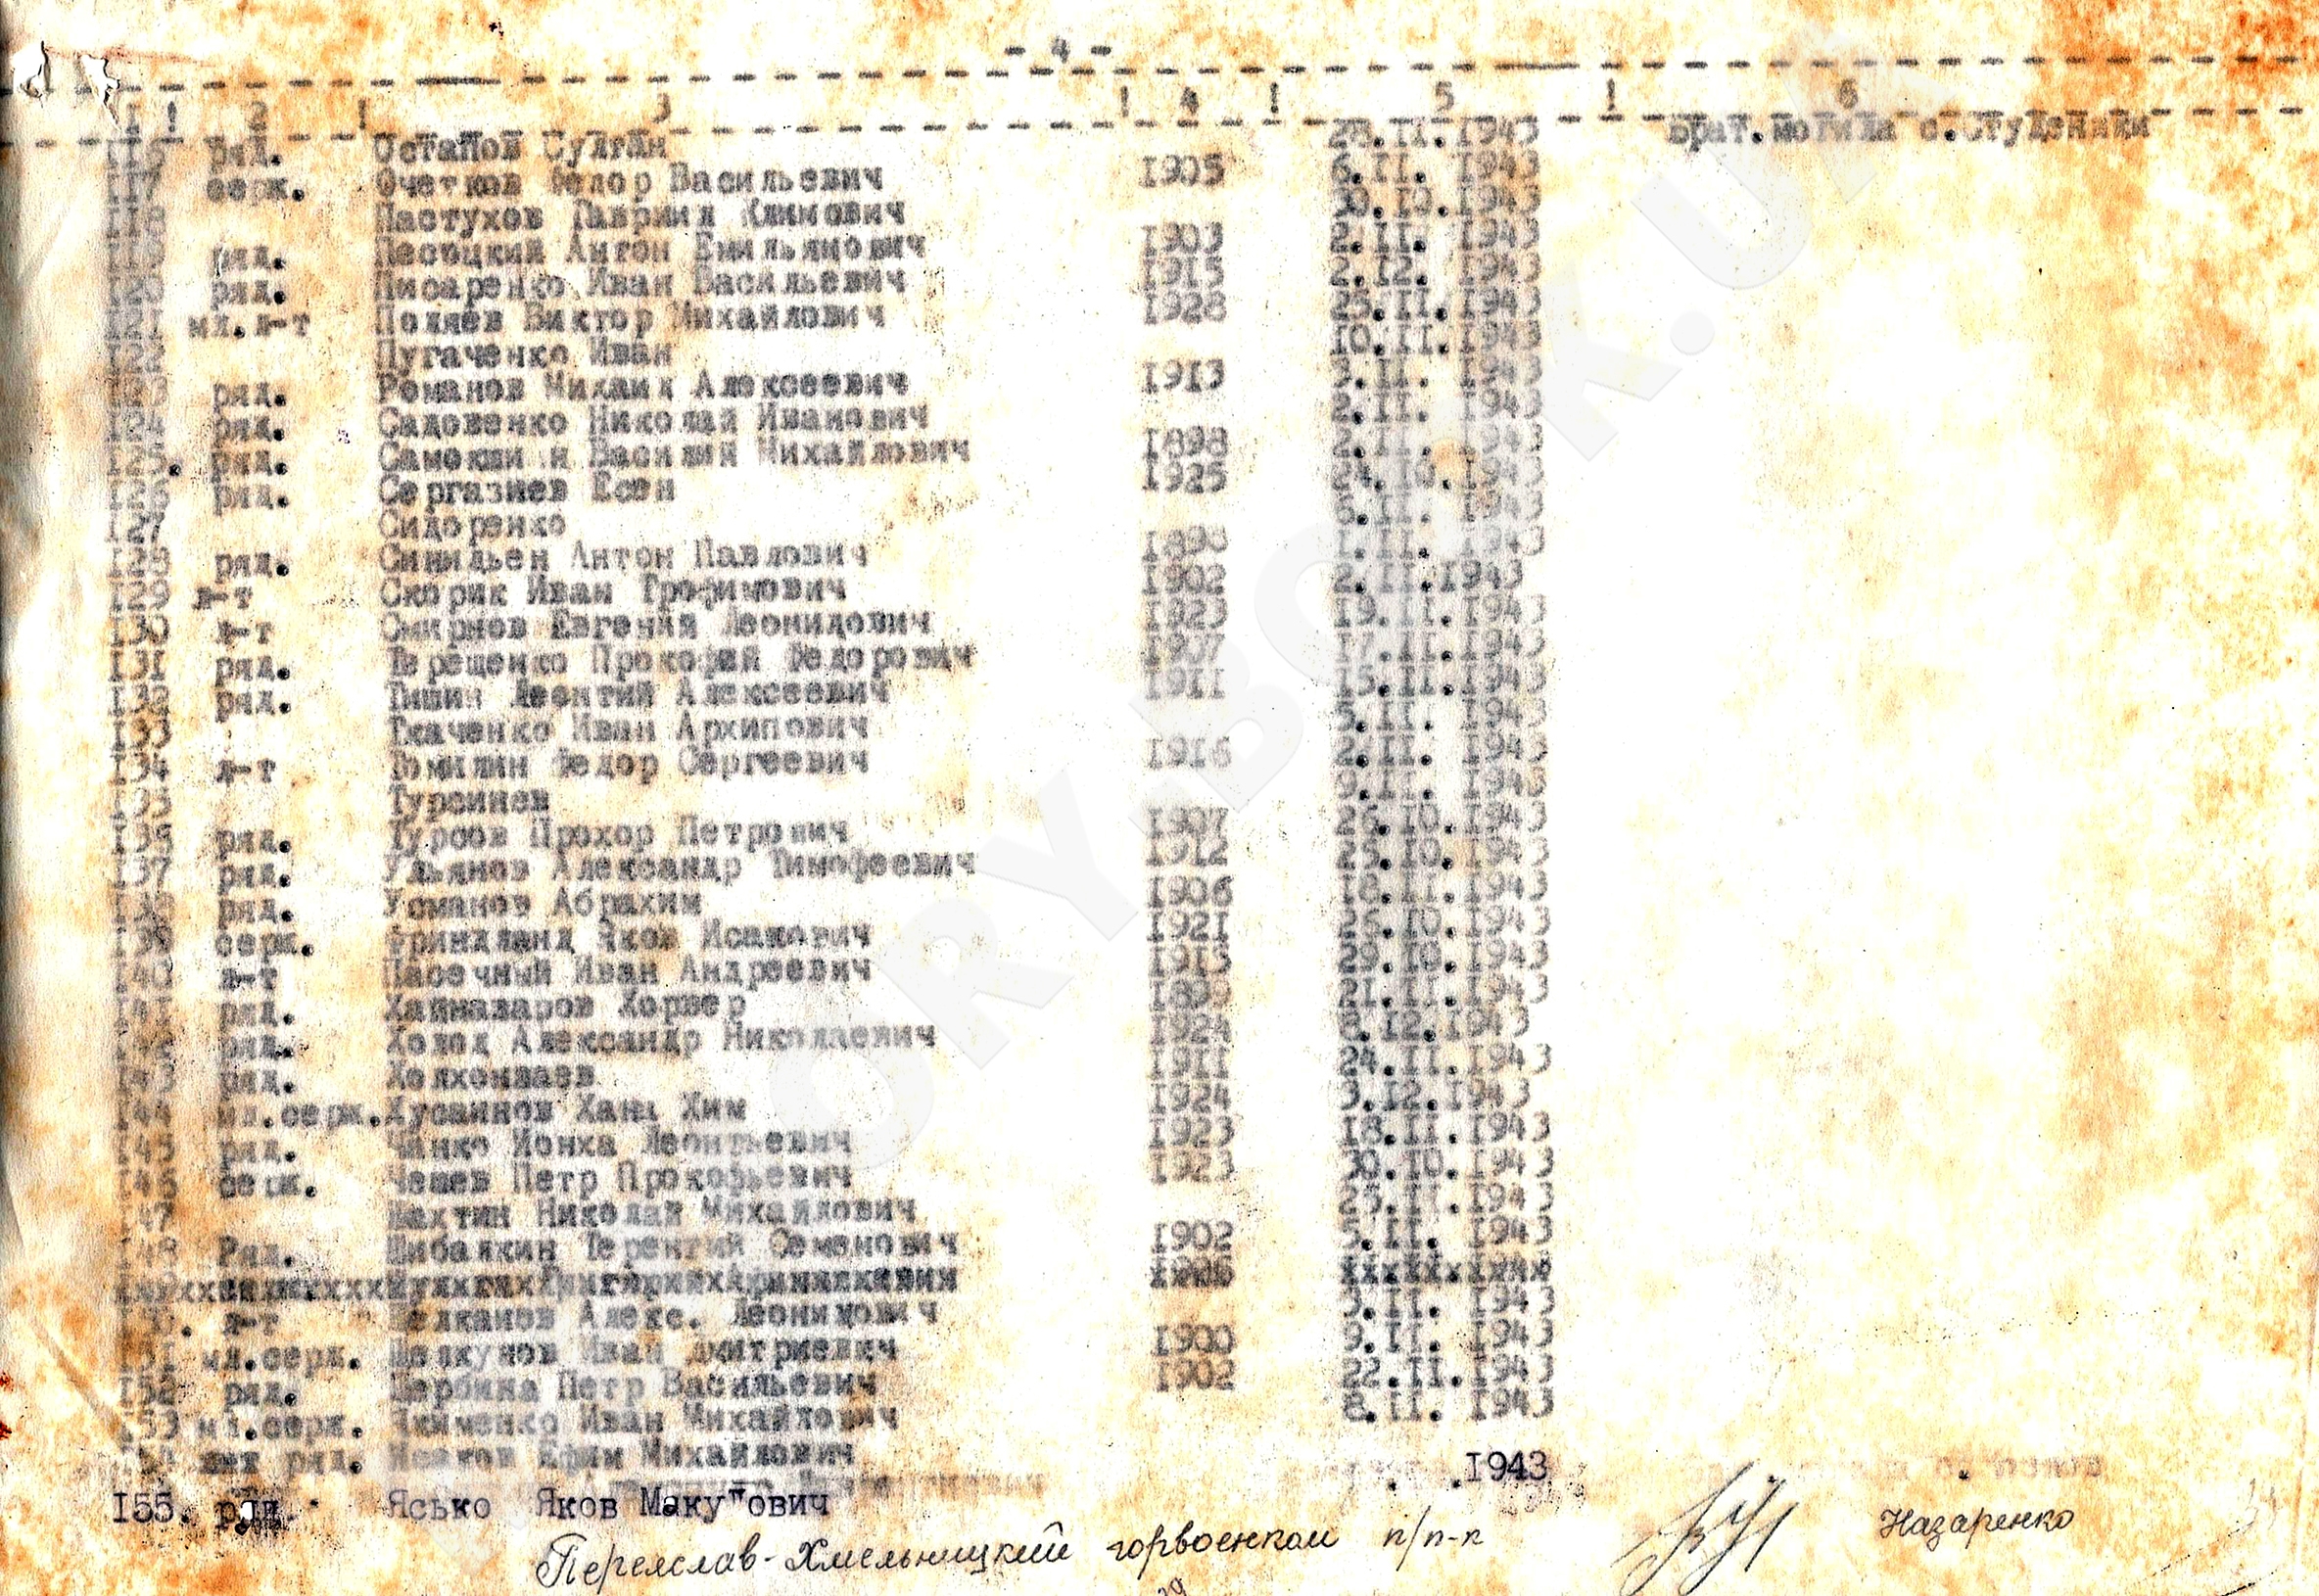 - 4 -
1 ! 2 ! 3 ! 4 ! 5 ! 6
116 ряд. Остапов Султан 28.II.1943 Брат.могила с.Студеники
117 серж. Очетков Федор Васильевич 1905 6.II. 1943
118 Пастухов Гавриил Климович 30.10.1943
119 ряд. Песоцкий Антон Емильянович 1903 2.II. 1943
120 ряд. Писаренко Иван Васильевич 1915 2.12. 1943
121 мл.л-т Поляев Виктор Михайлович 1928 25.II.1943
122 Пугаченко Иван 10.II.1943
123 ряд. Романов Михаил Алексеевич 1913 3.II. 1943
124 ряд. Садовенко Николай Иванович 2.II. 1943
125. ряд. Василий Михайлович 1898 2.II. 1943
126 ряд. Сергазиев Есен 1925 24.10.1943
127 Сидоренко 6.II. 1943
128 ряд. Антон Павлович 1898 1.II. 1943
129 л-т Скорик Иван Трофимович 1902 2.II.1943
130 л-т Смирнов Евгений Леонидович 1923 19.II.1943
131 ряд. Терещенко Прокофий Федорович 1907 17.II.1943
132 ряд. Тишин Леонтий Алексеевич 1911 15.II.1943
133 Ткаченко Иван Архипович 5.II. 1943
134 л-т Томилин Федор Сергеевич 1916 2.II. 1943
135 Турсинев 9.II. 1943
136 ряд. Турсов Прохор Петрович 1907 26.10.1943
137 ряд. Ульянов Александр Тимофеевич 1912 25.10.1943
138 ряд. Усманов Абрахим 1906 18.II.1943
139 серж. Фриндланд Яков Исакович 1921 26.10.1943
140 л-т Пасечный Иван Андреевич 1913 29.10.1943
141 ряд. Хайназаров Хорвер 21.II.1943
142 ряд. Холод Александр Николаевич 1924 8.12.1943
143 ряд. 1911 24.II.1943
144 мл.серж. Хусаинов Хана Хим 1924 3.12.1943
145 ряд. Чанко Ионха Леонтьевич 1923 18.II.1943
146 серж. Чешев Петр Прокофьевич 1923 30.10.1943
147 Шахтин Николай Михайлович 23.II.1943
148 Ряд. Шибалкин Терентий Семенович 1902 5.II. 1943
150. л-т Шелканов Алекс. Леонидович 3.II. 1943
151 мл.серж. Шелкунов Иван Дмитриевич 1900 9.II. 1943
152 ряд. Щербина Петр Васильевич 1902 22.II.1943
153 мл.серж. Якименко Иван Михайлович 8.II. 1943
ряд. Ефим Михайлович
155. ряд. Ясько Яков Макутович . .1943
Переяслав-Хмельницкий горвоенком п/п-к Назаренко